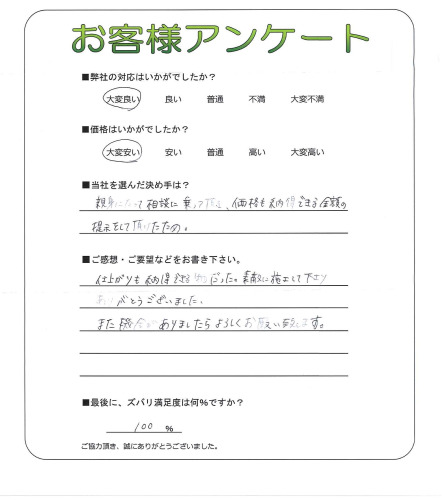 お客様アンケート
■弊社の対応はいかがでしたか?
大変良い 良い 普通 不満 大変不満
■価格はいかがでしたか?
大変安い 安い 普通 高い 大変高い
■当社を選んだ決め手は?
親身になって相談に乗って頂き、価格も納得できる金額の
提示をして頂けたため。
■ご感想・ご要望などをお書き下さい。
仕上がりも納得できるものだった。素敵に施工して下さり
ありがとうございました。
また機会がありましたらよろしくお願い致します。
■最後に、ズバリ満足度は何%ですか?
100 %
ご協力頂き、誠にありがとうございました。